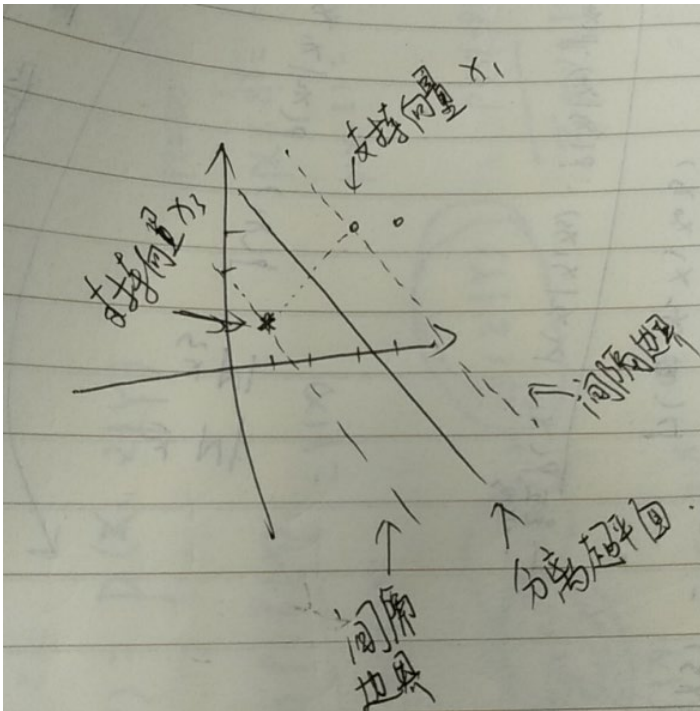 支持向量 x₁
支持向量 x₃
间隔边界
分离超平面.
间隔
边界